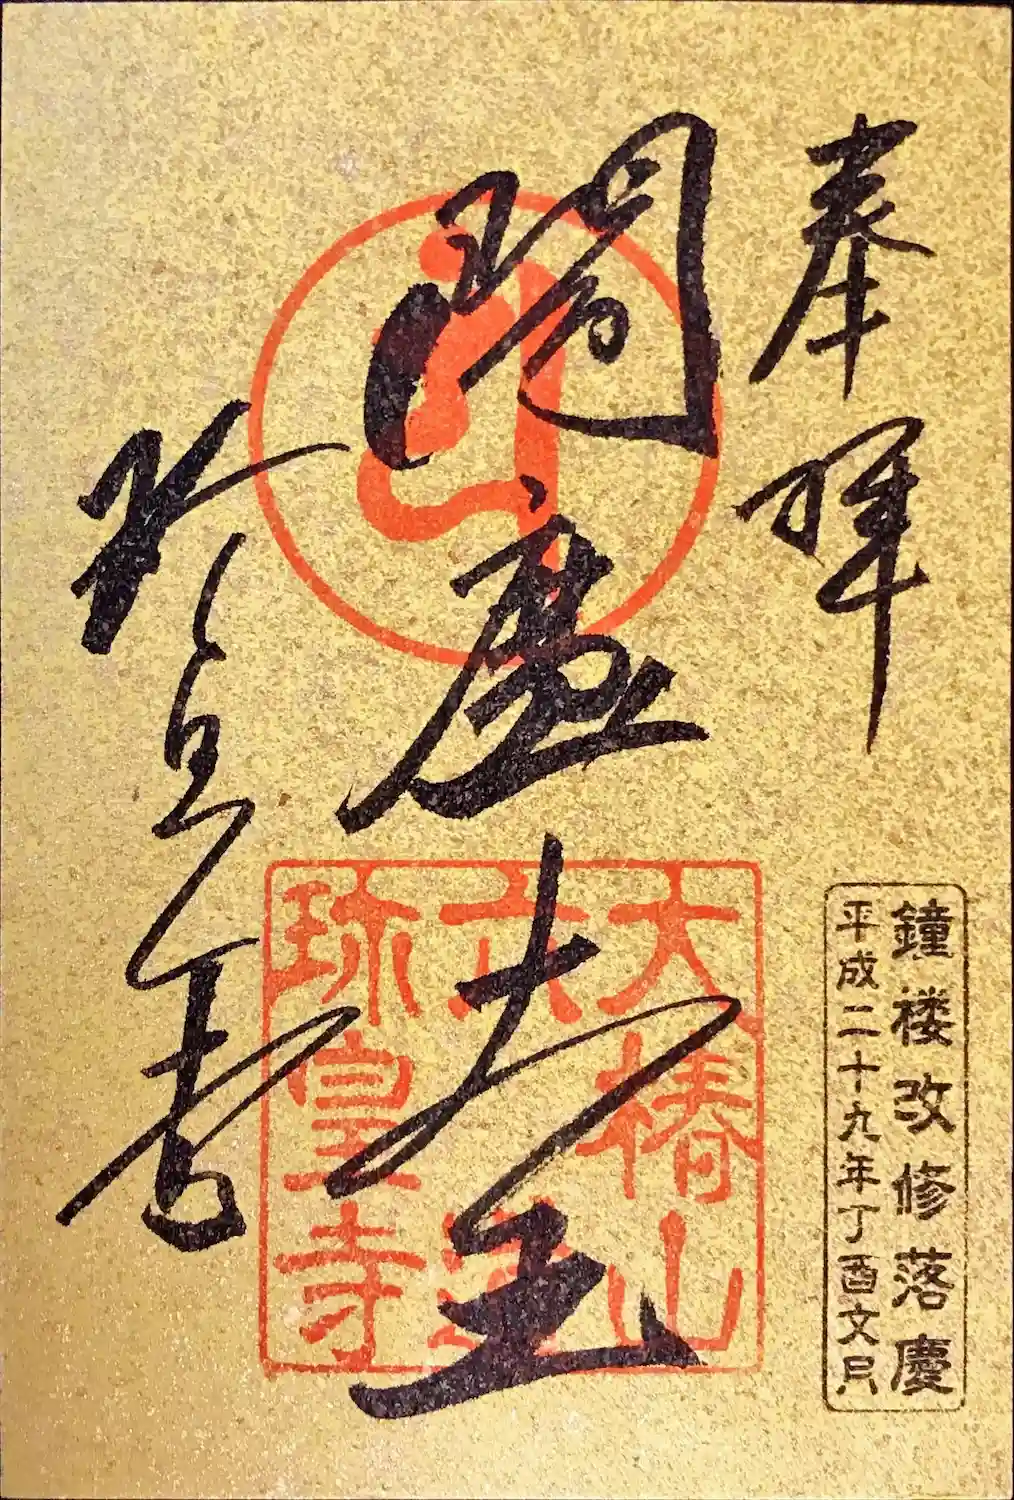 奉拝
閻魔大王
珎皇寺
大椿山
六道
珎皇寺
鐘楼改修落慶
平成二十九年丁酉文